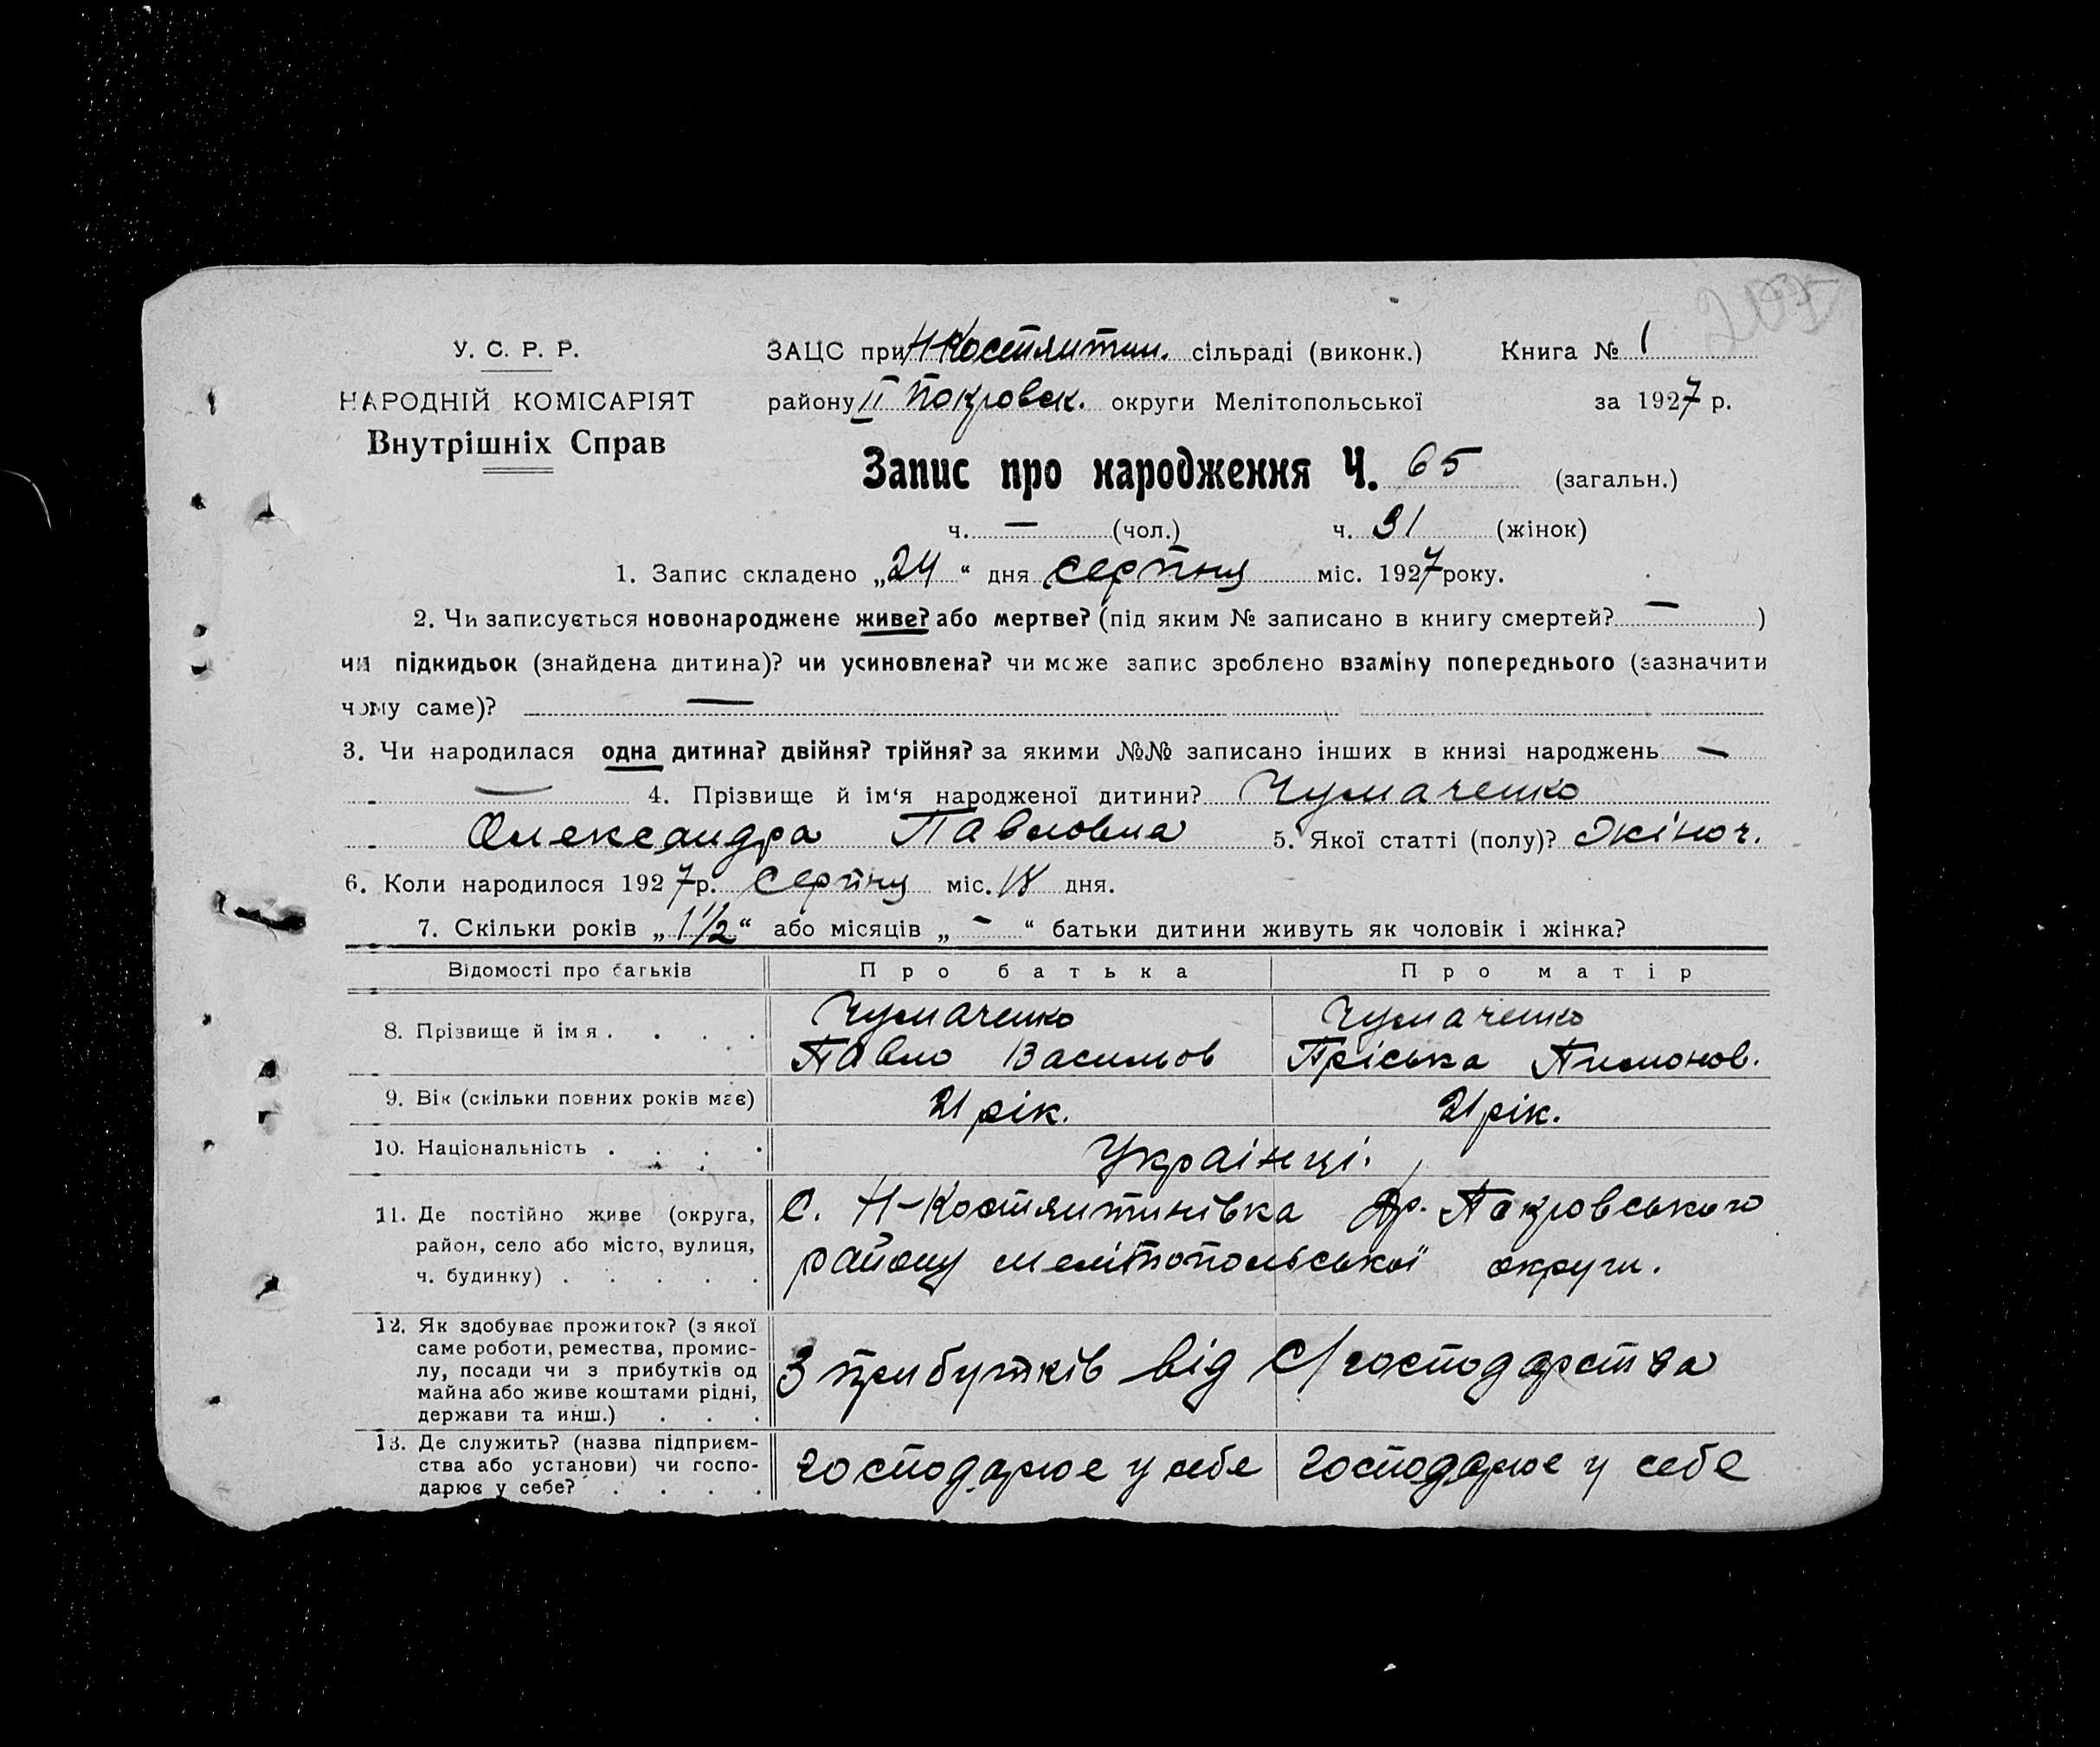 У. С. Р. Р.
НАРОДНІЙ КОМІСАРІЯТ
Внутрішніх Справ
ЗАЦС при Н-Костянтин. сільраді (виконк.)
Книга № 1
району ІІ Покровск. округи Мелітопольської
за 1927 р.
Запис про народження Ч. 65 (загальн.)
ч. — (чол.) ч. 31 (жінок)
1. Запис складено „24“ дня серпня міс. 1927 року.
2. Чи записується новонароджене живе? або мертве? (під яким № записано в книгу смертей? — )
чи підкидьок (знайдена дитина)? чи усиновлена? чи може запис зроблено взаміну попереднього (зазначити
чому саме)? —
3. Чи народилася одна дитина? двійня? трійня? за якими №№ записано інших в книзі народжень —
— 4. Прізвище й ім‘я народженої дитини? Чумаченко
Олександра Павловна 5. Якої статті (полу)? Жіноч.
6. Коли народилося 1927 р. серпня міс. 18 дня.
7. Скільки років „1 1/2“ або місяців „ – “ батьки дитини живуть як чоловік і жінка?
Відомості про батьків Про батька Про матір
8. Прізвище й імя . . . .
Чумаченко Чумаченко
Павло Васильов Пріська Пимонов.
9. Вік (скільки повних років має) 21 рік. 21 рік.
10. Національність . . . . Українці.
11. Де постійно живе (округа,
район, село або місто, вулиця,
ч. будинку) . . . . .
С. Н-Костянтинівка Др. Покровського
району мелітопольської округи.
12. Як здобуває прожиток? (з якої
саме роботи, ремества, промис-
лу, посади чи з прибутків од
майна або живе коштами рідні,
держави та инш.) . . .
З прибутків від с/господарства
13. Де служить? (назва підприєм-
ства або установи) чи госпо-
дарює у себе? . . . .
господарює у себе господарює у себе